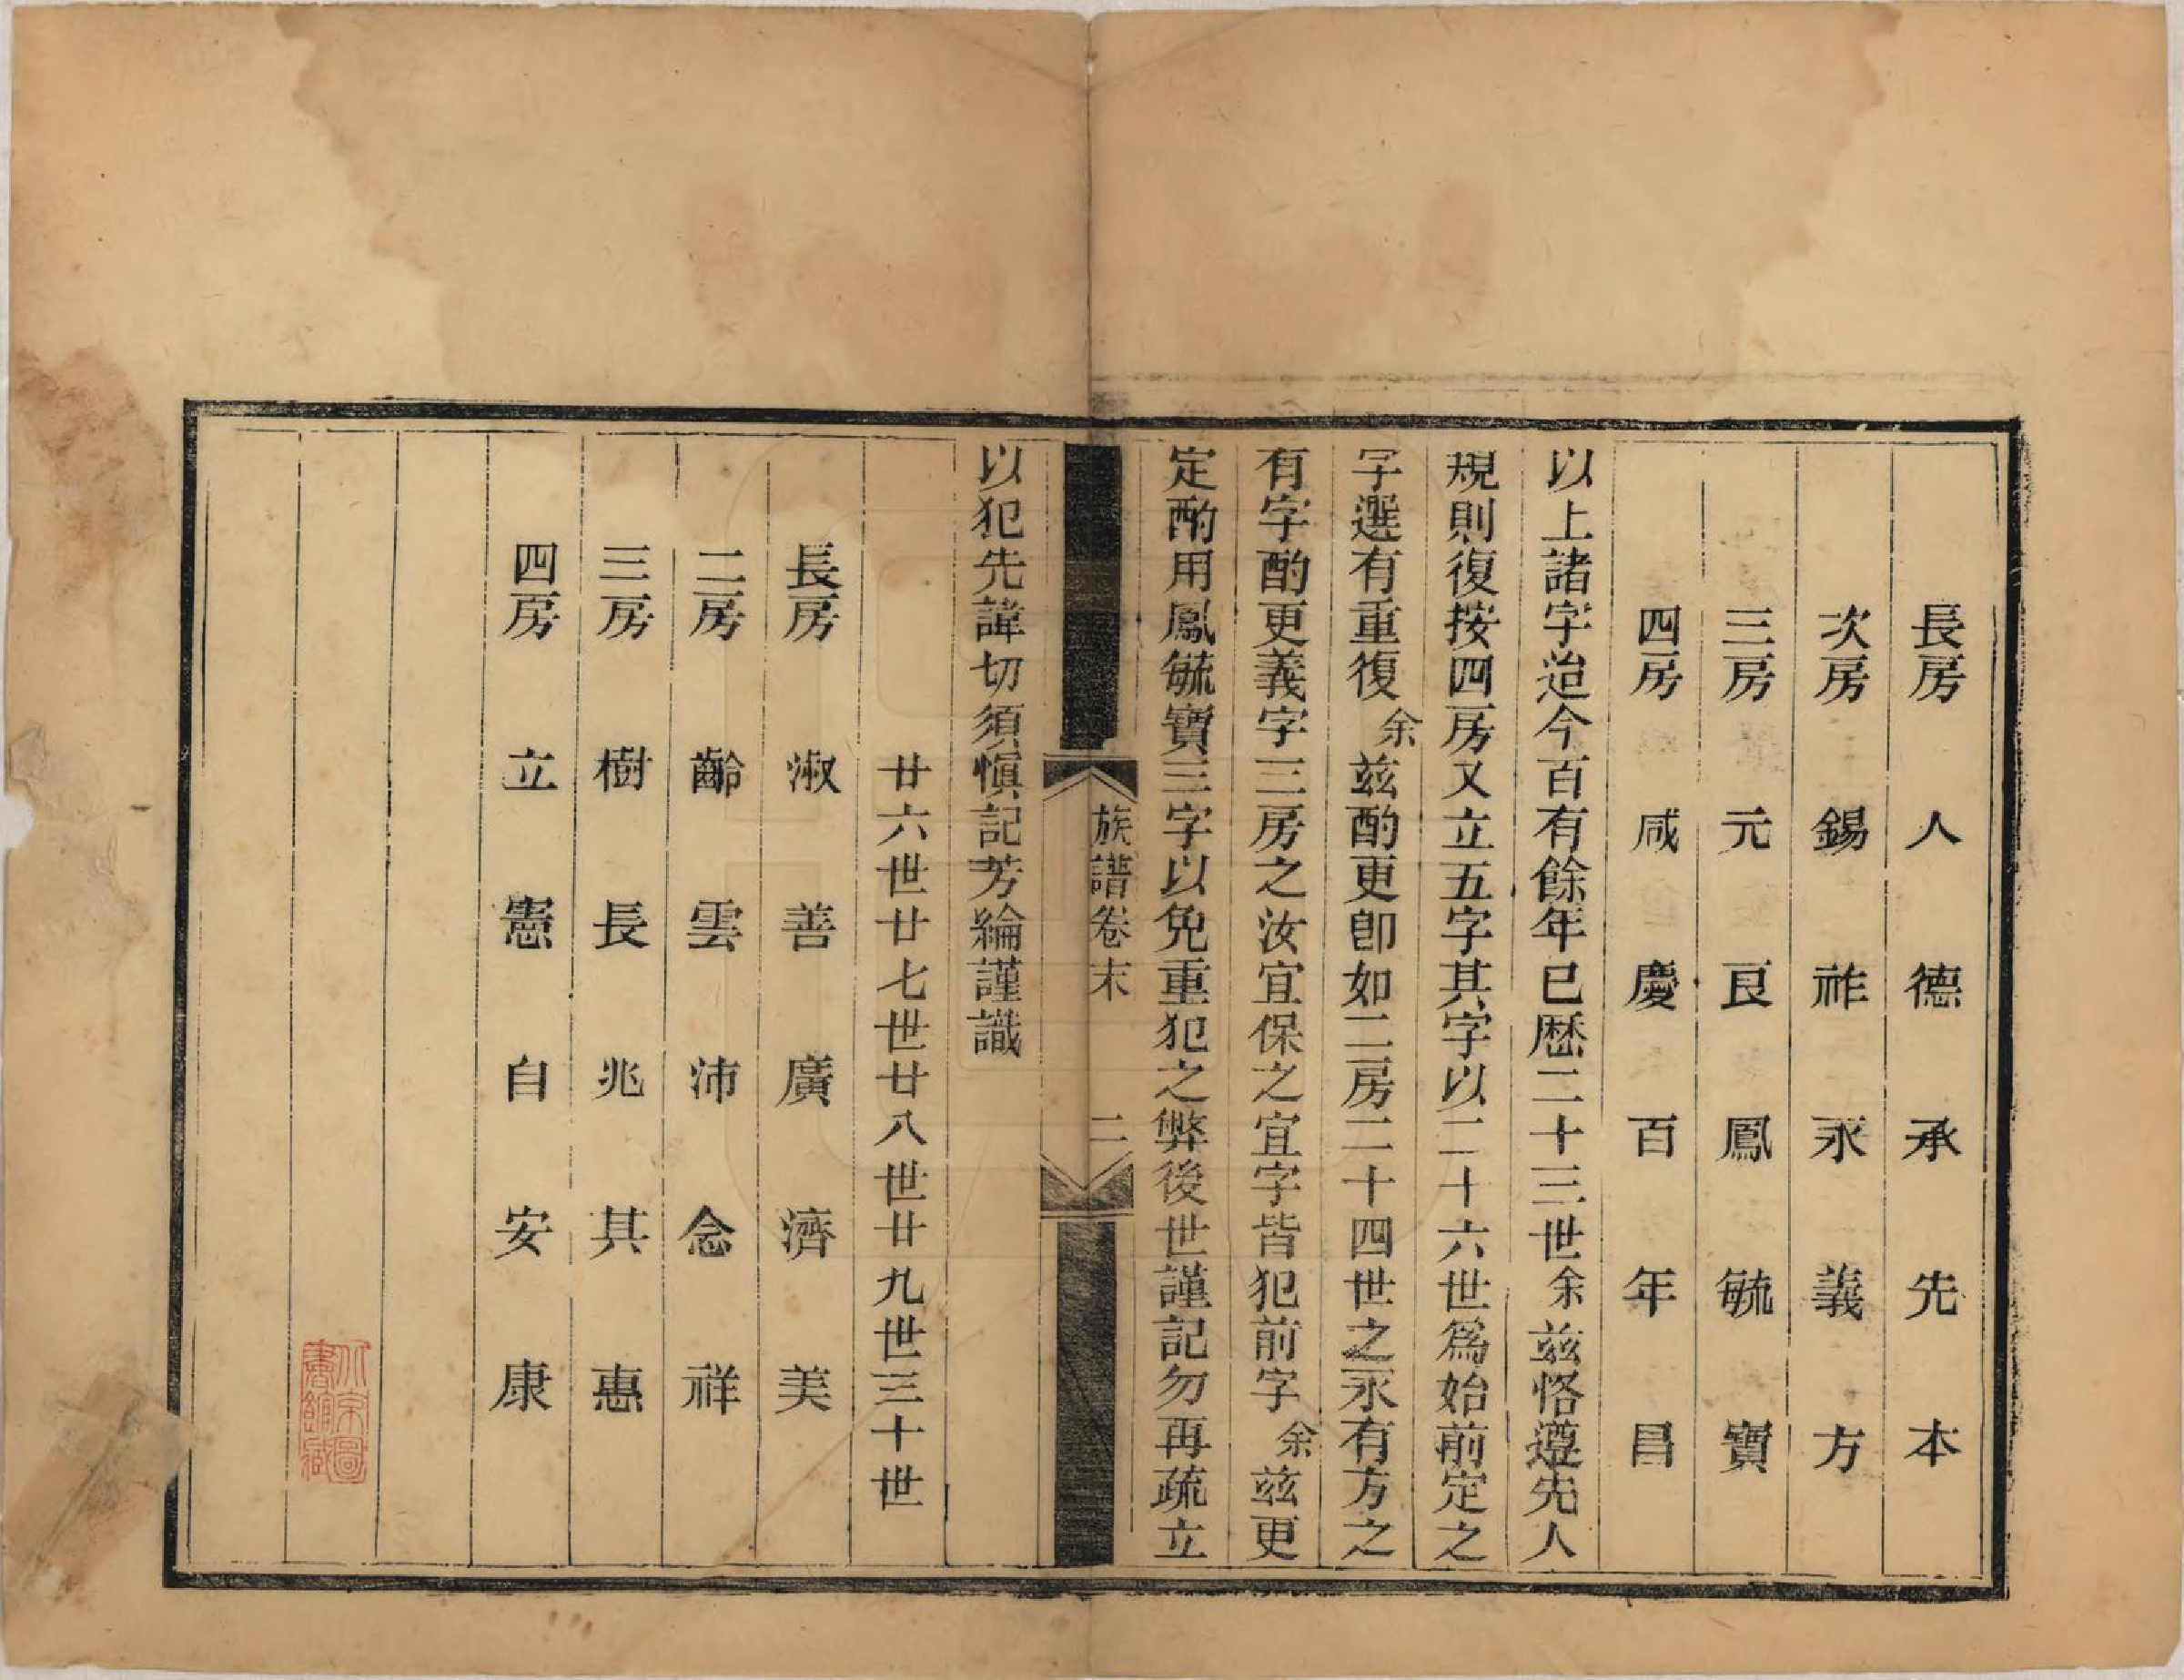 長房 人德承先本
次房 錫祚永義方
三房 元良鳳毓寶
四房 咸慶百年昌
以上諸字迨今百有餘年已歷二十三世余玆恪遵先人
規則復按四房又立五字其字以二十六世爲始前定之
字選有重復余玆酌更卽如二房二十四世之永有方之
有字酌更義字三房之汝宜保之宜字皆犯前字余玆更
定酌用鳳毓寶三字以免重犯之弊後世謹記勿再疏立
族譜卷末 二
以犯先諱切須愼記芳綸謹識
廿六世廿七世廿八世廿九世三十世
長房 淑善廣濟美
二房 齡雲沛念祥
三房 樹長兆其惠
四房 立憲自安康
人文圖
書館藏